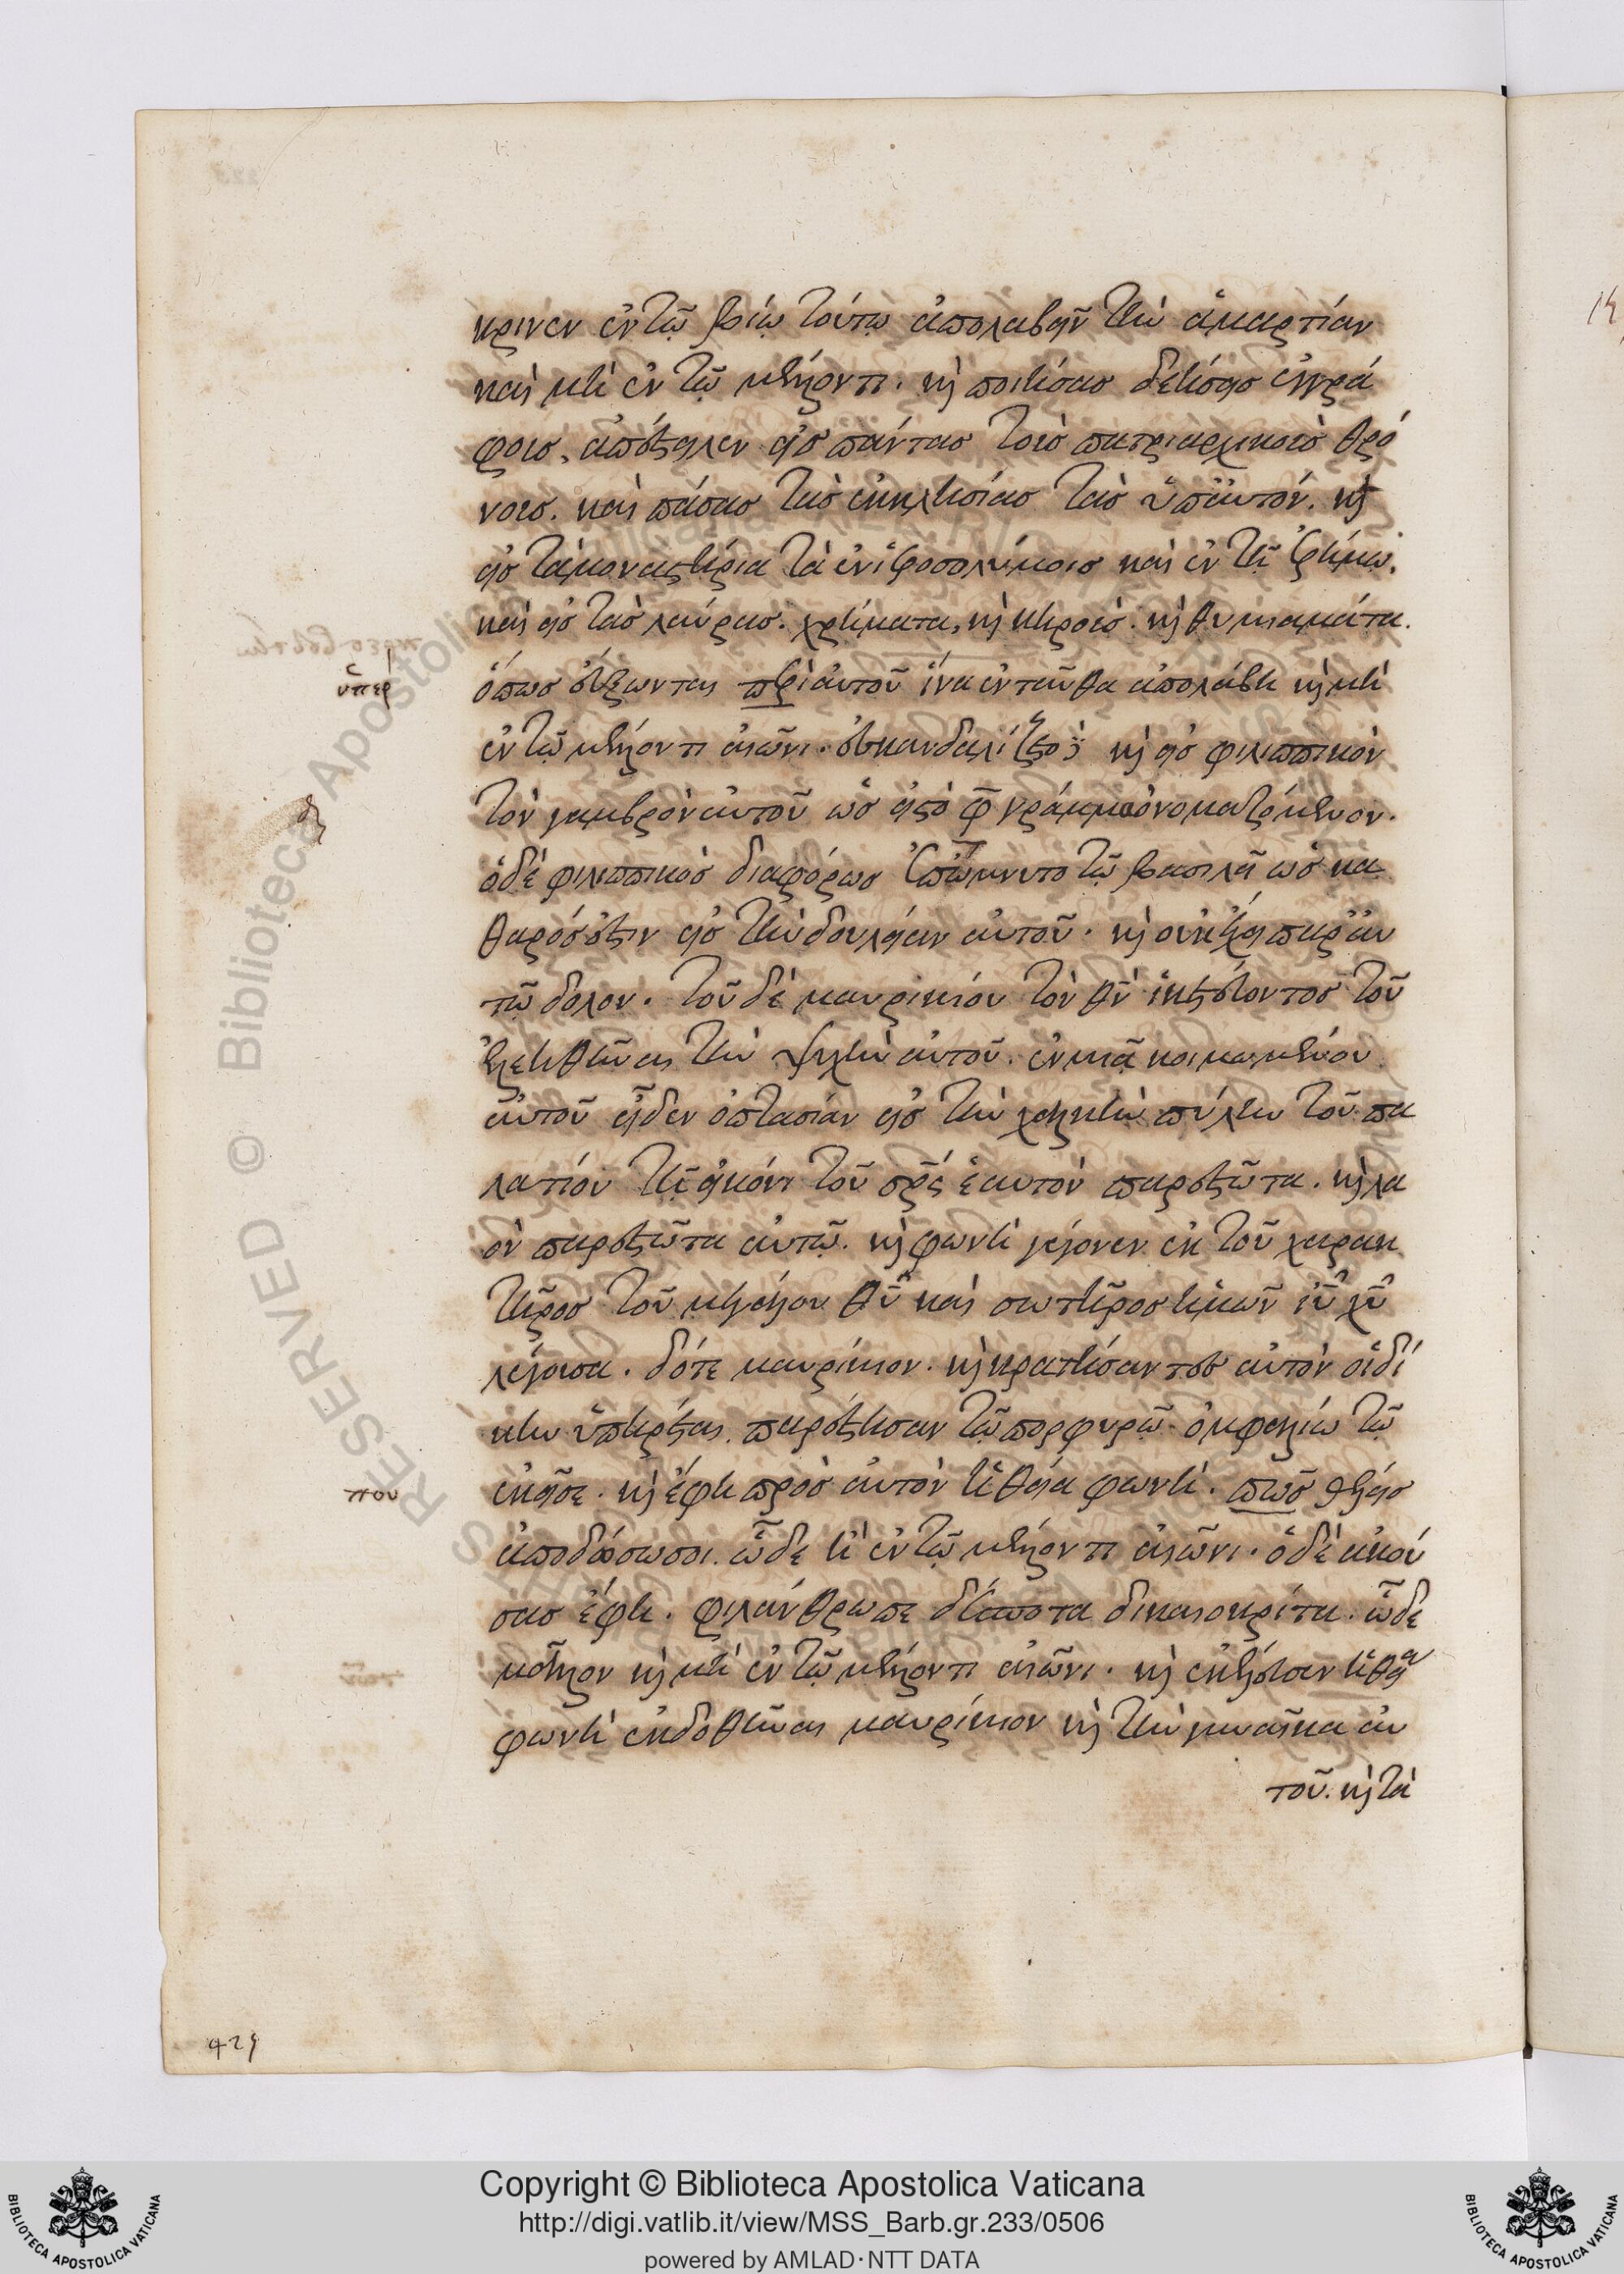 κρινεν ἐν τῷ βίῳ τούτῳ ἀπολαβεῖν τὴν ἁμαρτίαν
καὶ μὴ ἐν τῷ μέλλοντι. καὶ ποιήσας δεήσεις ἐγγρά
φους, ἀπέστειλεν εἰς πάντας τοὺς πατριαρχικοὺς θρό
νους. καὶ πάσας τὰς ἐκκλησίας τὰς ὑπ' αὐτόν. καὶ
εἰς τὰ μοναστήρια τὰ ἐν ἱεροσολύμοις καὶ ἐν τῇ ἐρήμῳ.
καὶ εἰς τὰς λαύρας. χρήματα, καὶ κηροὺς. καὶ θυμιαμάτα.
ὅπως εὔξωνται περὶ αὐτοῦ ἵνα ἐνταῦθα ἀπολάβη καὶ μὴ
ὑπὲρ
ἐν τῷ μέλλοντι αἰῶνι. ἐσκανδαλίζετο καὶ εἰς φιλιππικὸν
τὸν γαμβρὸν αὐτοῦ ὡς εἰς τὸ φ γράμμα ὀνομαζόμενον.
ὁ δὲ φιλιππικὸς διαφόρως ἐπώμνυτο τῷ βασιλεῖ ὡς κα
θαρός ἐστιν εἰς τὴν δουλείαν αὐτοῦ. καὶ οὐκ ἔχει παρ' αὐ
τῷ δόλον. τοῦ δὲ μαυρικίου τὸν θν ἱκετεύοντος τοῦ
ἐλεηθῆναι τὴν ψυχὴν αὐτοῦ. ἐν μιᾷ κοιμωμένου
αὐτοῦ εἶδεν ὀπτασίαν εἰς τὴν χαλκὴν πύλην τοῦ πα
λατίου τῇ εἰκόνι τοῦ σρς ἑαυτὸν παρεστῶτα. καὶ λα
ὸν παρεστῶτα αὐτῷ. καὶ φωνὴ γέγονεν ἐκ τοῦ χαρακ
τῆρος τοῦ μεγάλου θυ καὶ σωτῆρος ἡμῶν ιυ χυ
λέγουσα. δότε μαυρίκιον. καὶ κρατήσαντες αὐτὸν οἱ δί
κην ὑπηρέται παρέστησαν τῷ πορφυρῷ ὀμφαλίῳ τῷ
ἐκεῖσε. καὶ ἔφη πρὸς αὐτὸν ἡ θεία φωνή. πῶς θέλεις
που
ἀποδώσω σοι. ὧδε ἢ ἐν τῷ μέλλοντι αἰῶνι. ὁ δὲ ἀκού
σας ἔφη. φιλάνθρωπε δέσποτα δικαιοκρίτα. ὧδε
μᾶλλον καὶ μὴ ἐν τῷ μέλλοντι αἰῶνι. καὶ ἐκέλευσεν ἡ θεία
φωνὴ ἐκδοθῆναι μαυρίκιον καὶ τὴν γυναῖκα αὐ
τοῦ. καὶ τὰ
429
RESERVED © Biblioteca Apostolica
Copyright © Biblioteca Apostolica Vaticana
http://digi.vatlib.it/view/MSS_Barb.gr.233/0506
powered by AMLAD·NTT DATA
BIBLIOTECA APOSTOLICA VATICANA
BIBLIOTECA APOSTOLICA VATICANA